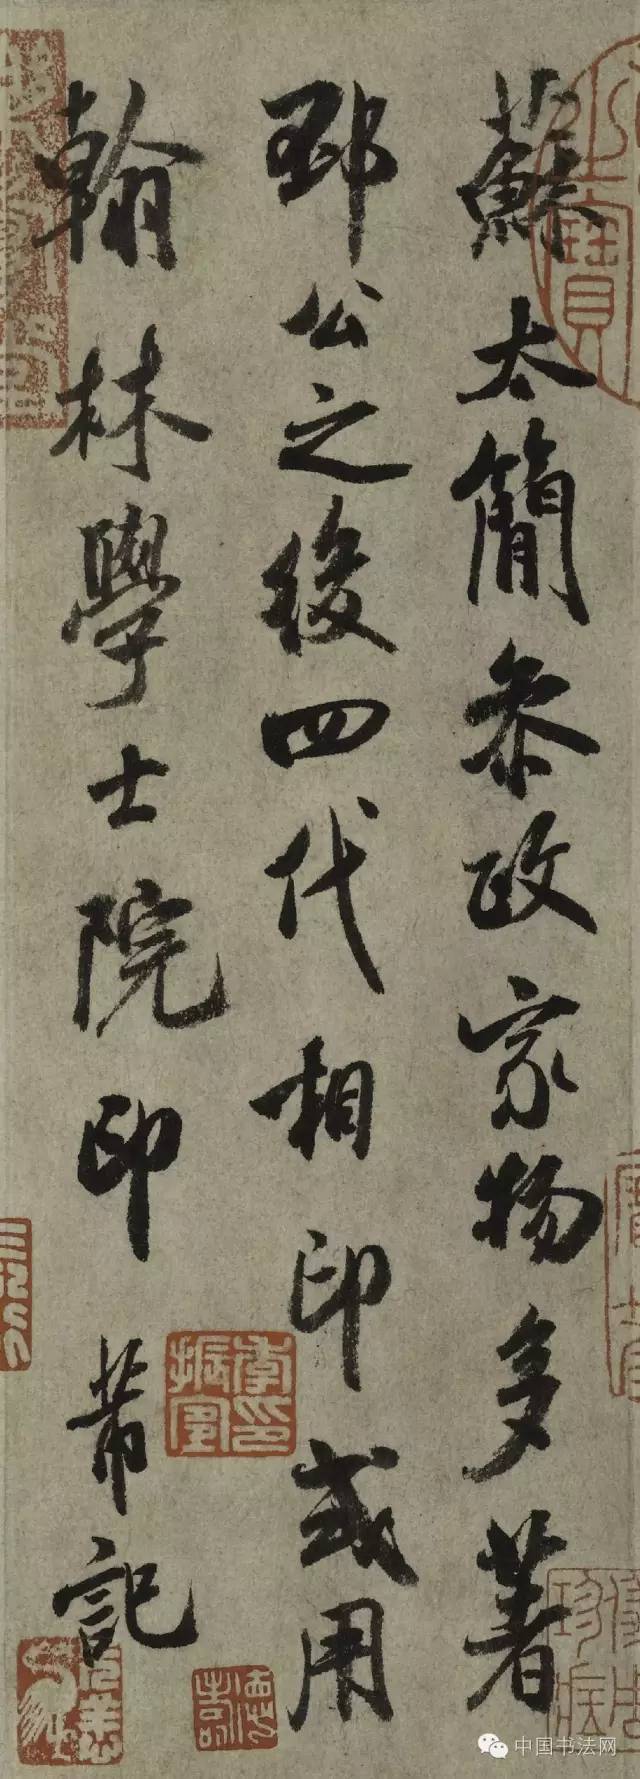 蘇太簡參政家物多著
邳公之後四代相印或用
翰林學士院印 芾記
李振
中国书法网